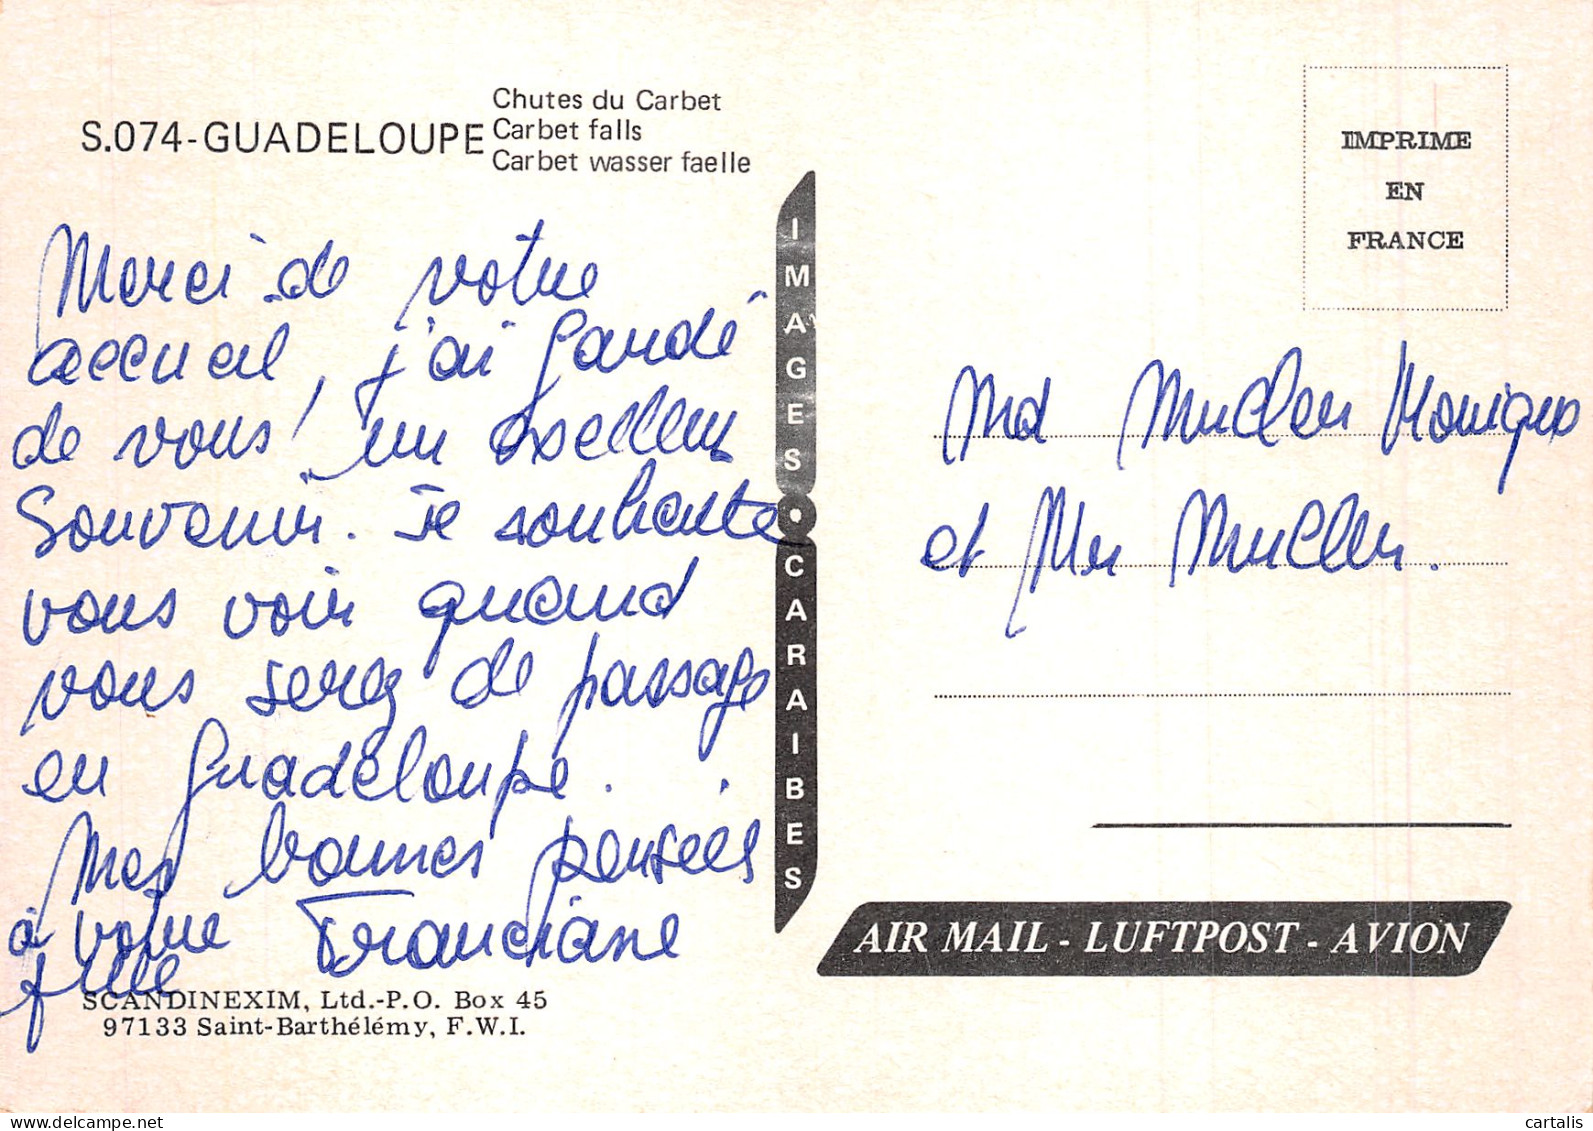 S.074-GUADELOUPE
Chutes du Carbet
Carbet falls
Carbet wasser faelle
Merci de votre
accueil, j'ai gardé
de vous un excellent
souvenir. Je souhaite
vous voir quand
vous serez de passage
en Guadeloupe.
Mes bonnes pensées
à votre Franciane
fille
SCANDINEXIM, Ltd.-P.O. Box 45
97133 Saint-Barthélémy, F.W.I.
IMAGES • CARAIBES
IMPRIME
EN
FRANCE
Md Muller Monique
et Mr Muller.
AIR MAIL - LUFTPOST - AVION
cartalis
delcampe.net